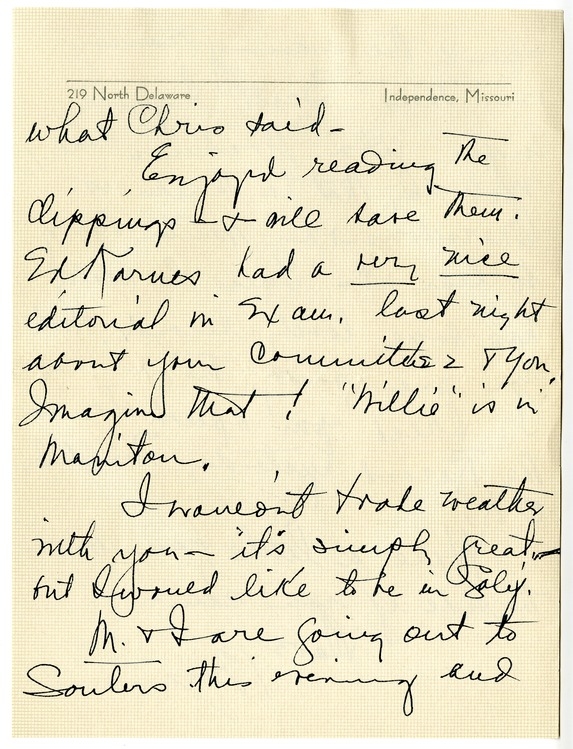 219 North Delaware Independence, Missouri
what Chris said-
Enjoyed reading the
clippings - & will save them.
Ed Karnes had a very nice
editorial in Exam. last night
about your Committee & You.
Imagine that! "Willie" is in
Maniton.
I wouldn't trade weather
with you - it's simply great -
but I would like to be in Gal'y.
M. & I are going out to
Souters this evening and